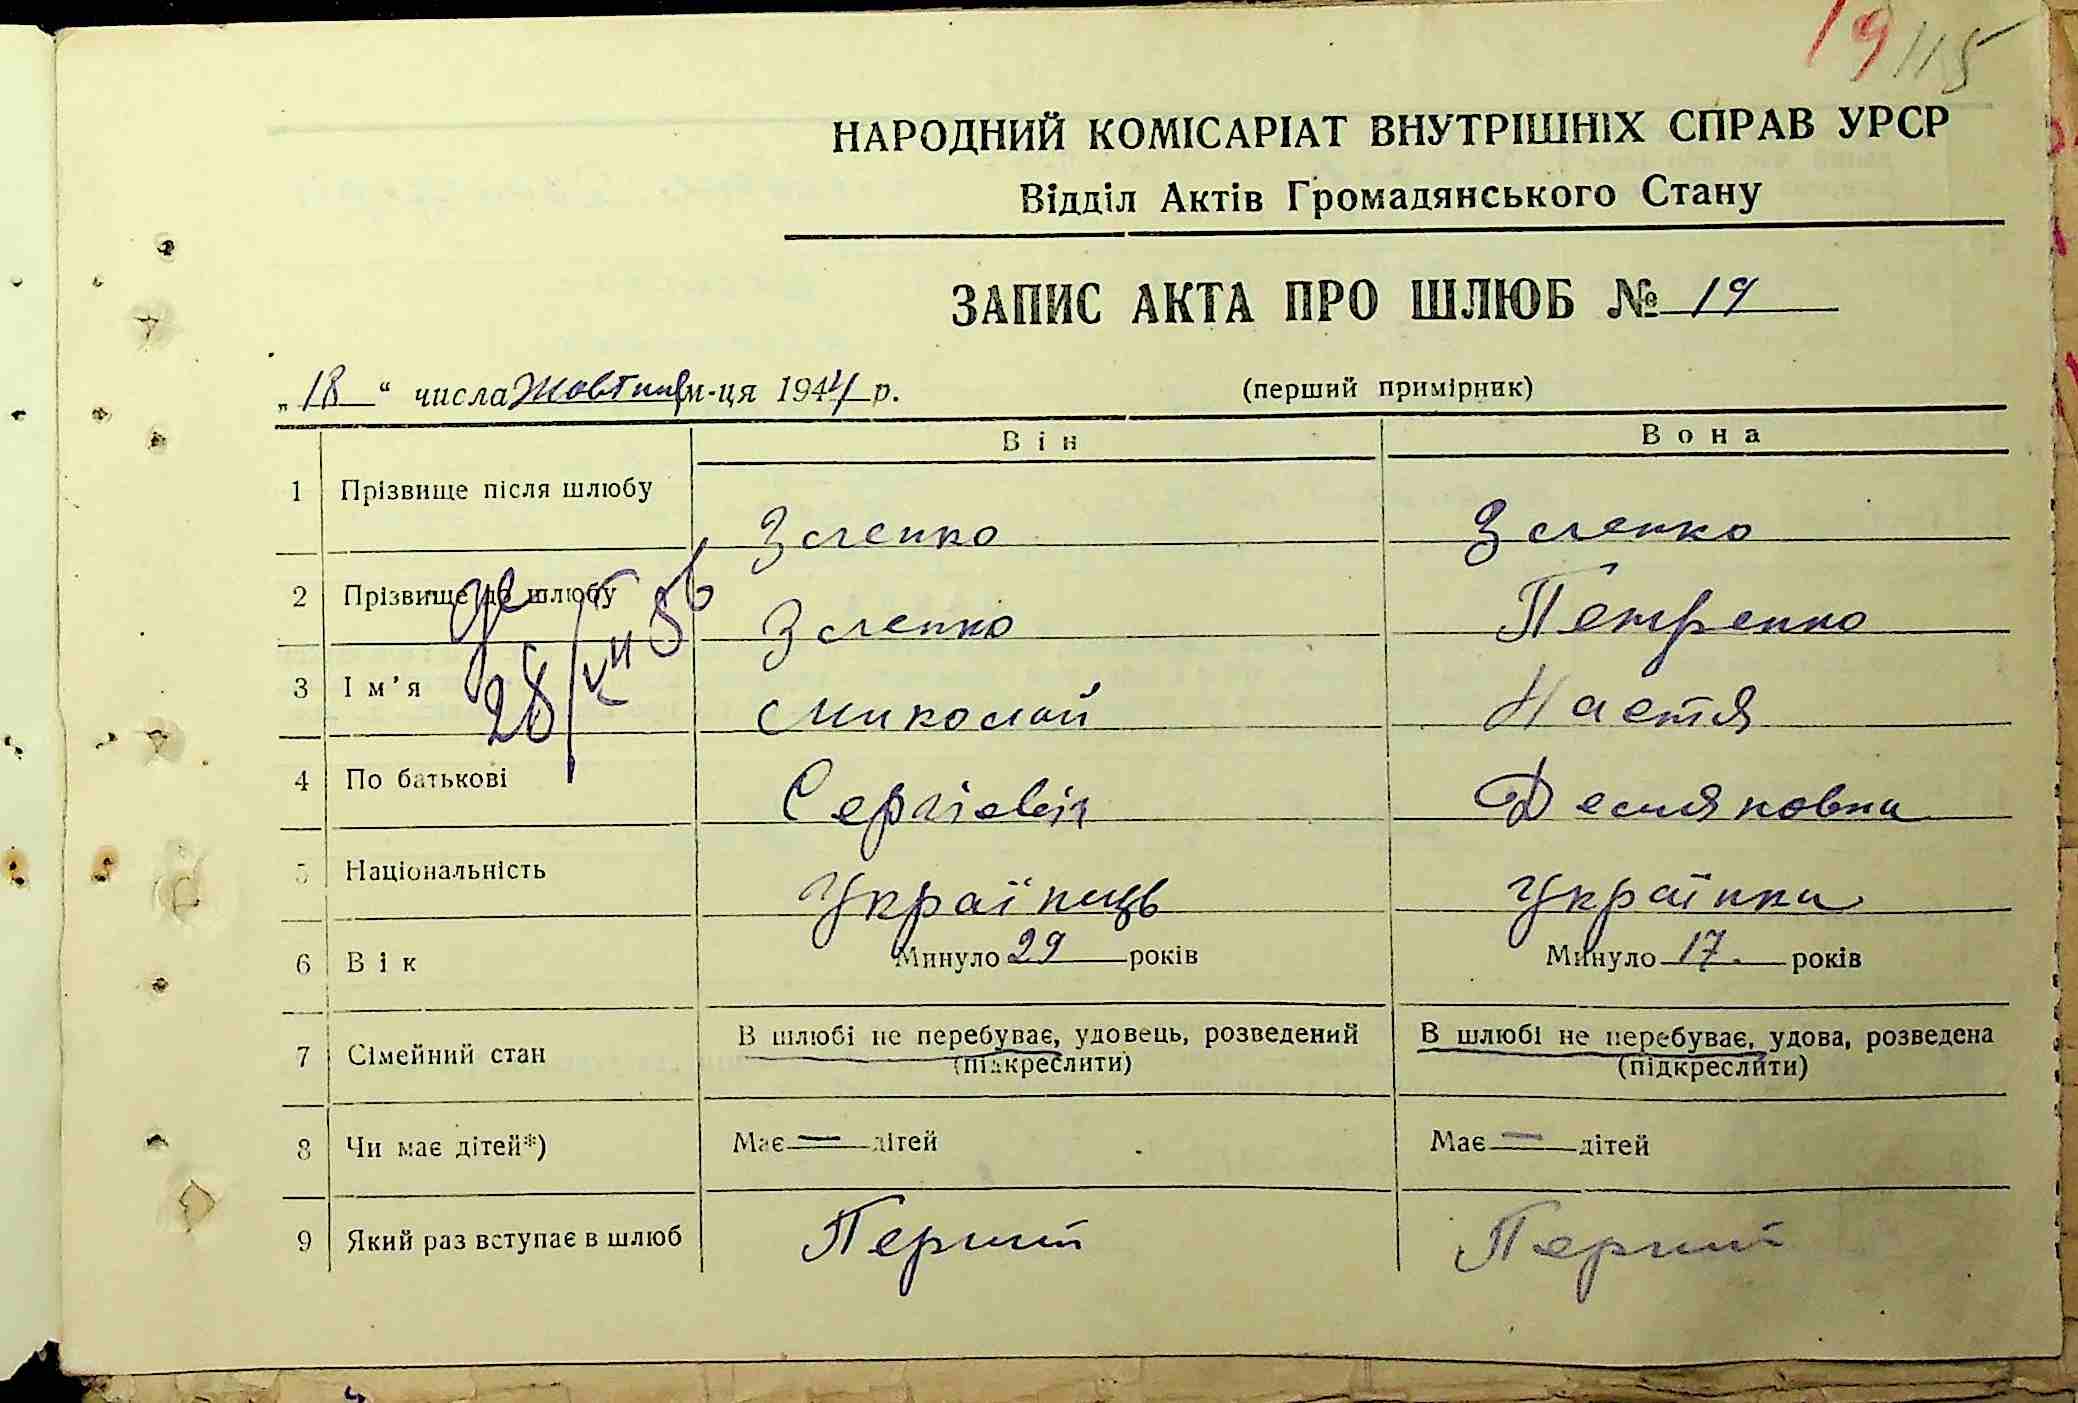 19 115
НАРОДНИЙ КОМІСАРІАТ ВНУТРІШНІХ СПРАВ УРСР
Відділ Актів Громадянського Стану
ЗАПИС АКТА ПРО ШЛЮБ № 19
„18“ числа Жовтня м-ця 1944 р. (перший примірник)
Він Вона
1 Прізвище після шлюбу Зленко Зленко
2 Прізвище до шлюбу Зленко Петренко
3 Ім’я Миколай Настя
28/VII 56
4 По батькові Сергієвіч Демяновна
5 Національність Українець Українка
6 Вік Минуло 29 років Минуло 17. років
7 Сімейний стан В шлюбі не перебуває, удовець, розведений В шлюбі не перебуває, удова, розведена
(підкреслити) (підкреслити)
8 Чи має дітей*) Має — дітей Має — дітей
9 Який раз вступає в шлюб Перший Перший